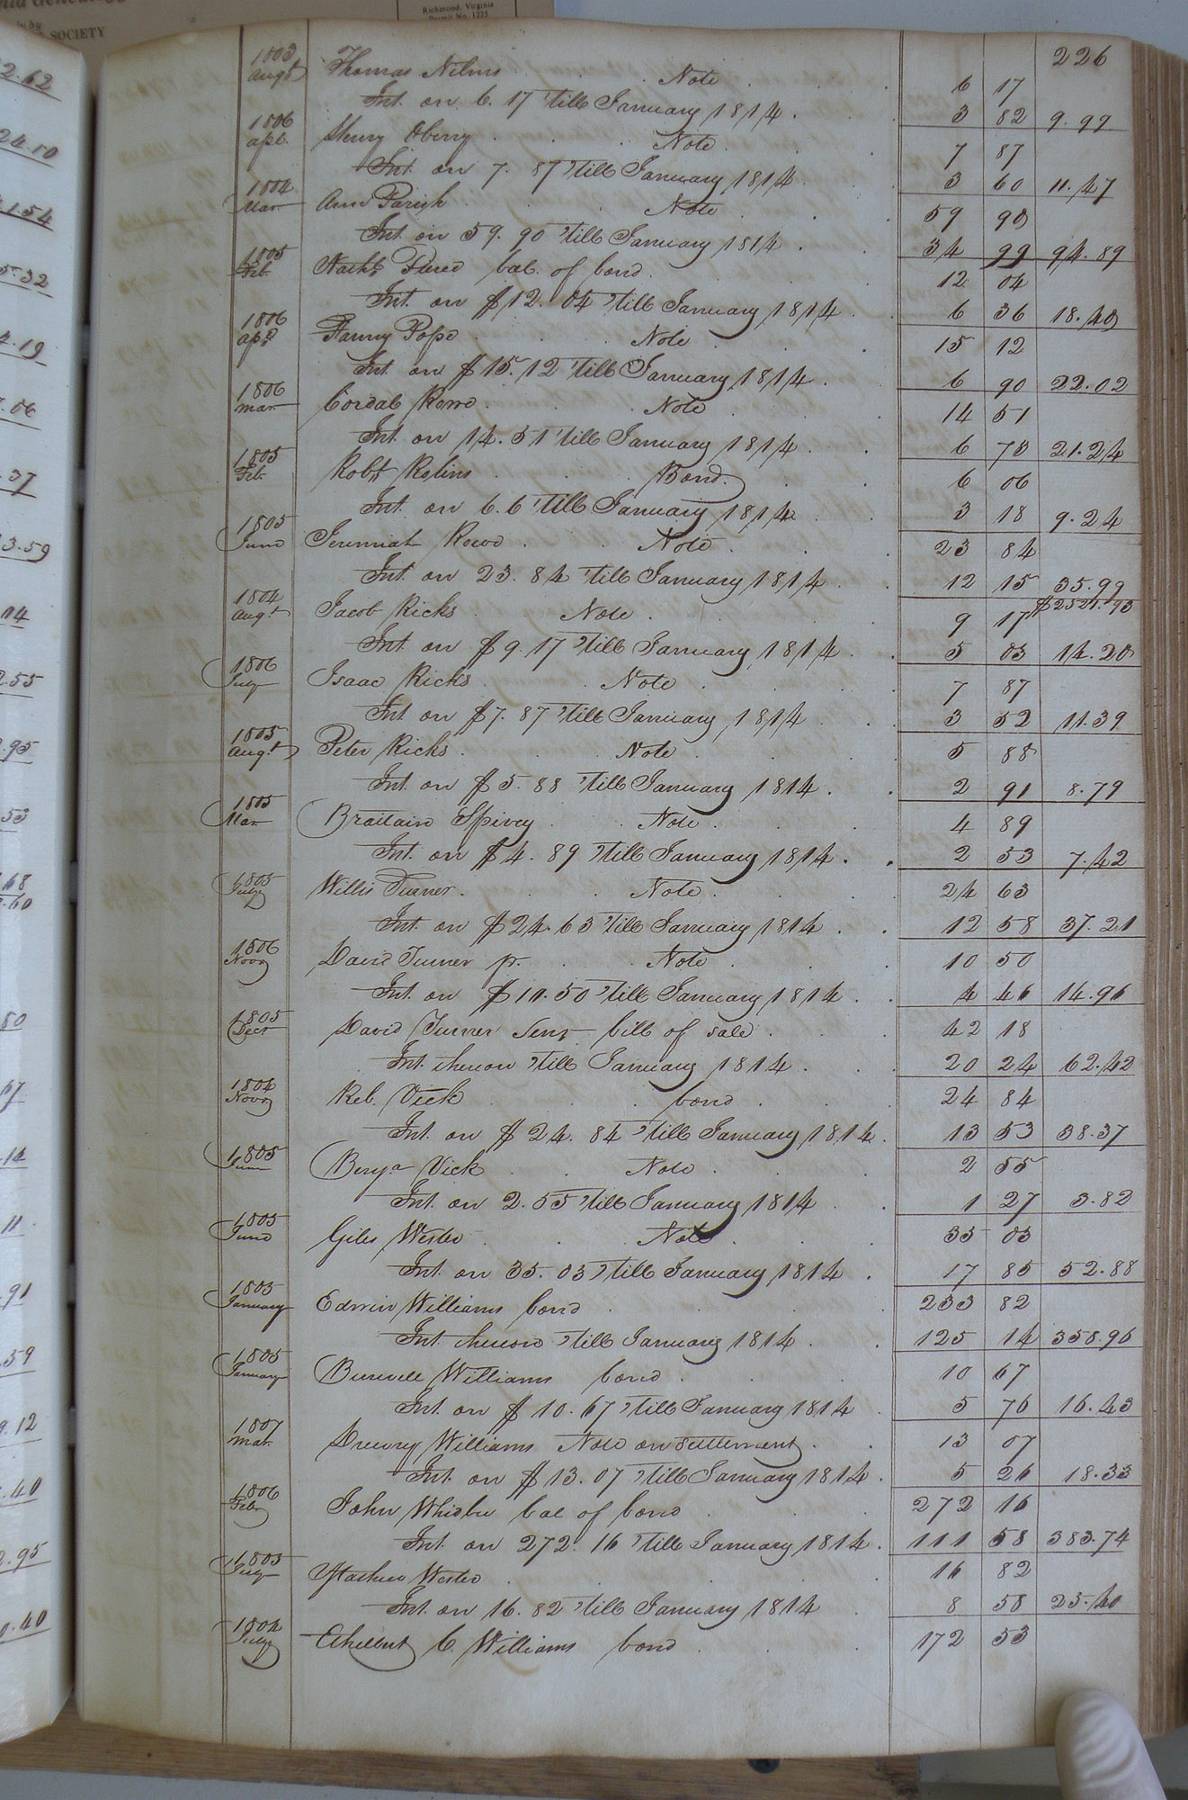 Richmond, Virginia
Permit No. 1225
SOCIETY
226
1803 Augt Thomas Nelms . Note . 6 17
Int. on 6. 17 'till January 1814 . 3 82 9.99
1806 apl. Henry Oberry . Note . 7 87
Int. on 7. 87 'till January 1814 3 60 11.47
1804 Mar Ann Parish . Note . 59 90
Int. on 59. 90 'till January 1814 . 34 99 94.89
1805 Feb. bal. of bond . 12 04
Int. on $12. 04 'till January 1814 . 6 36 18.40
1806 apl. Fanny Pope . Note . 15 12
Int. on $15. 12 'till January 1814 . 6 90 22.02
1806 Mar. Cordal . Note . 14 51
Int. on 14. 51 'till January 1814 . 6 73 21.24
1805 Feb. Robt . Bond . 6 06
Int. on 6. 6 'till January 1814 3 18 9.24
1805 June Jeremiah . Note . 23 84
Int. on 23. 84 'till January 1814 . 12 15 35.99
1804 Augt Jacob Ricks . Note . 9 17
Int. on $9. 17 'till January 1814 . 5 03 14.20
1806 July Isaac Ricks . Note . 7 87
Int. on $7. 87 'till January 1814 . 3 52 11.39
1805 Augt Peter Ricks . Note . 5 88
Int. on $5. 88 'till January 1814 . 2 91 8.79
1805 Mar Spivey . Note . 4 89
Int. on $4. 89 'till January 1814 . 2 53 7.42
1805 July Willis Turner . Note . 24 63
Int. on $24. 63 'till January 1814 . 12 58 37.21
1806 Novr David Turner jr. . Note . 10 50
Int. on $10. 50 'till January 1814 . 4 46 14.96
1805 Decr David Turner Senr bill of sale . 42 18
Int. thereon 'till January 1814 . 20 24 62.42
1804 Novr Reb. Vick . bond . 24 84
Int. on $24. 84 'till January 1814 . 13 53 38.37
1805 June Benja Vick . Note . 2 55
Int. on 2. 55 'till January 1814 . 1 27 3.82
1805 June Giles Wester . Note . 35 03
Int. on 35. 03 'till January 1814 . 17 85 52.88
1805 January Edwin Williams bond . 233 82
Int. thereon 'till January 1814 . 125 14 358.96
1805 January Burwell Williams bond . 10 67
Int. on $10. 67 'till January 1814 . 5 76 16.43
1807 Mar. Drewry Williams Note on settlement . 13 07
Int. on $13. 07 'till January 1814 . 5 26 18.33
1806 Feby John bal of bond . 272 16
Int. on 272. 16 'till January 1814 . 111 58 383.74
1805 July Wester . 16 82
Int. on 16. 82 'till January 1814 8 58 25.40
1804 July Ethelbert C. Williams bond . 172 53